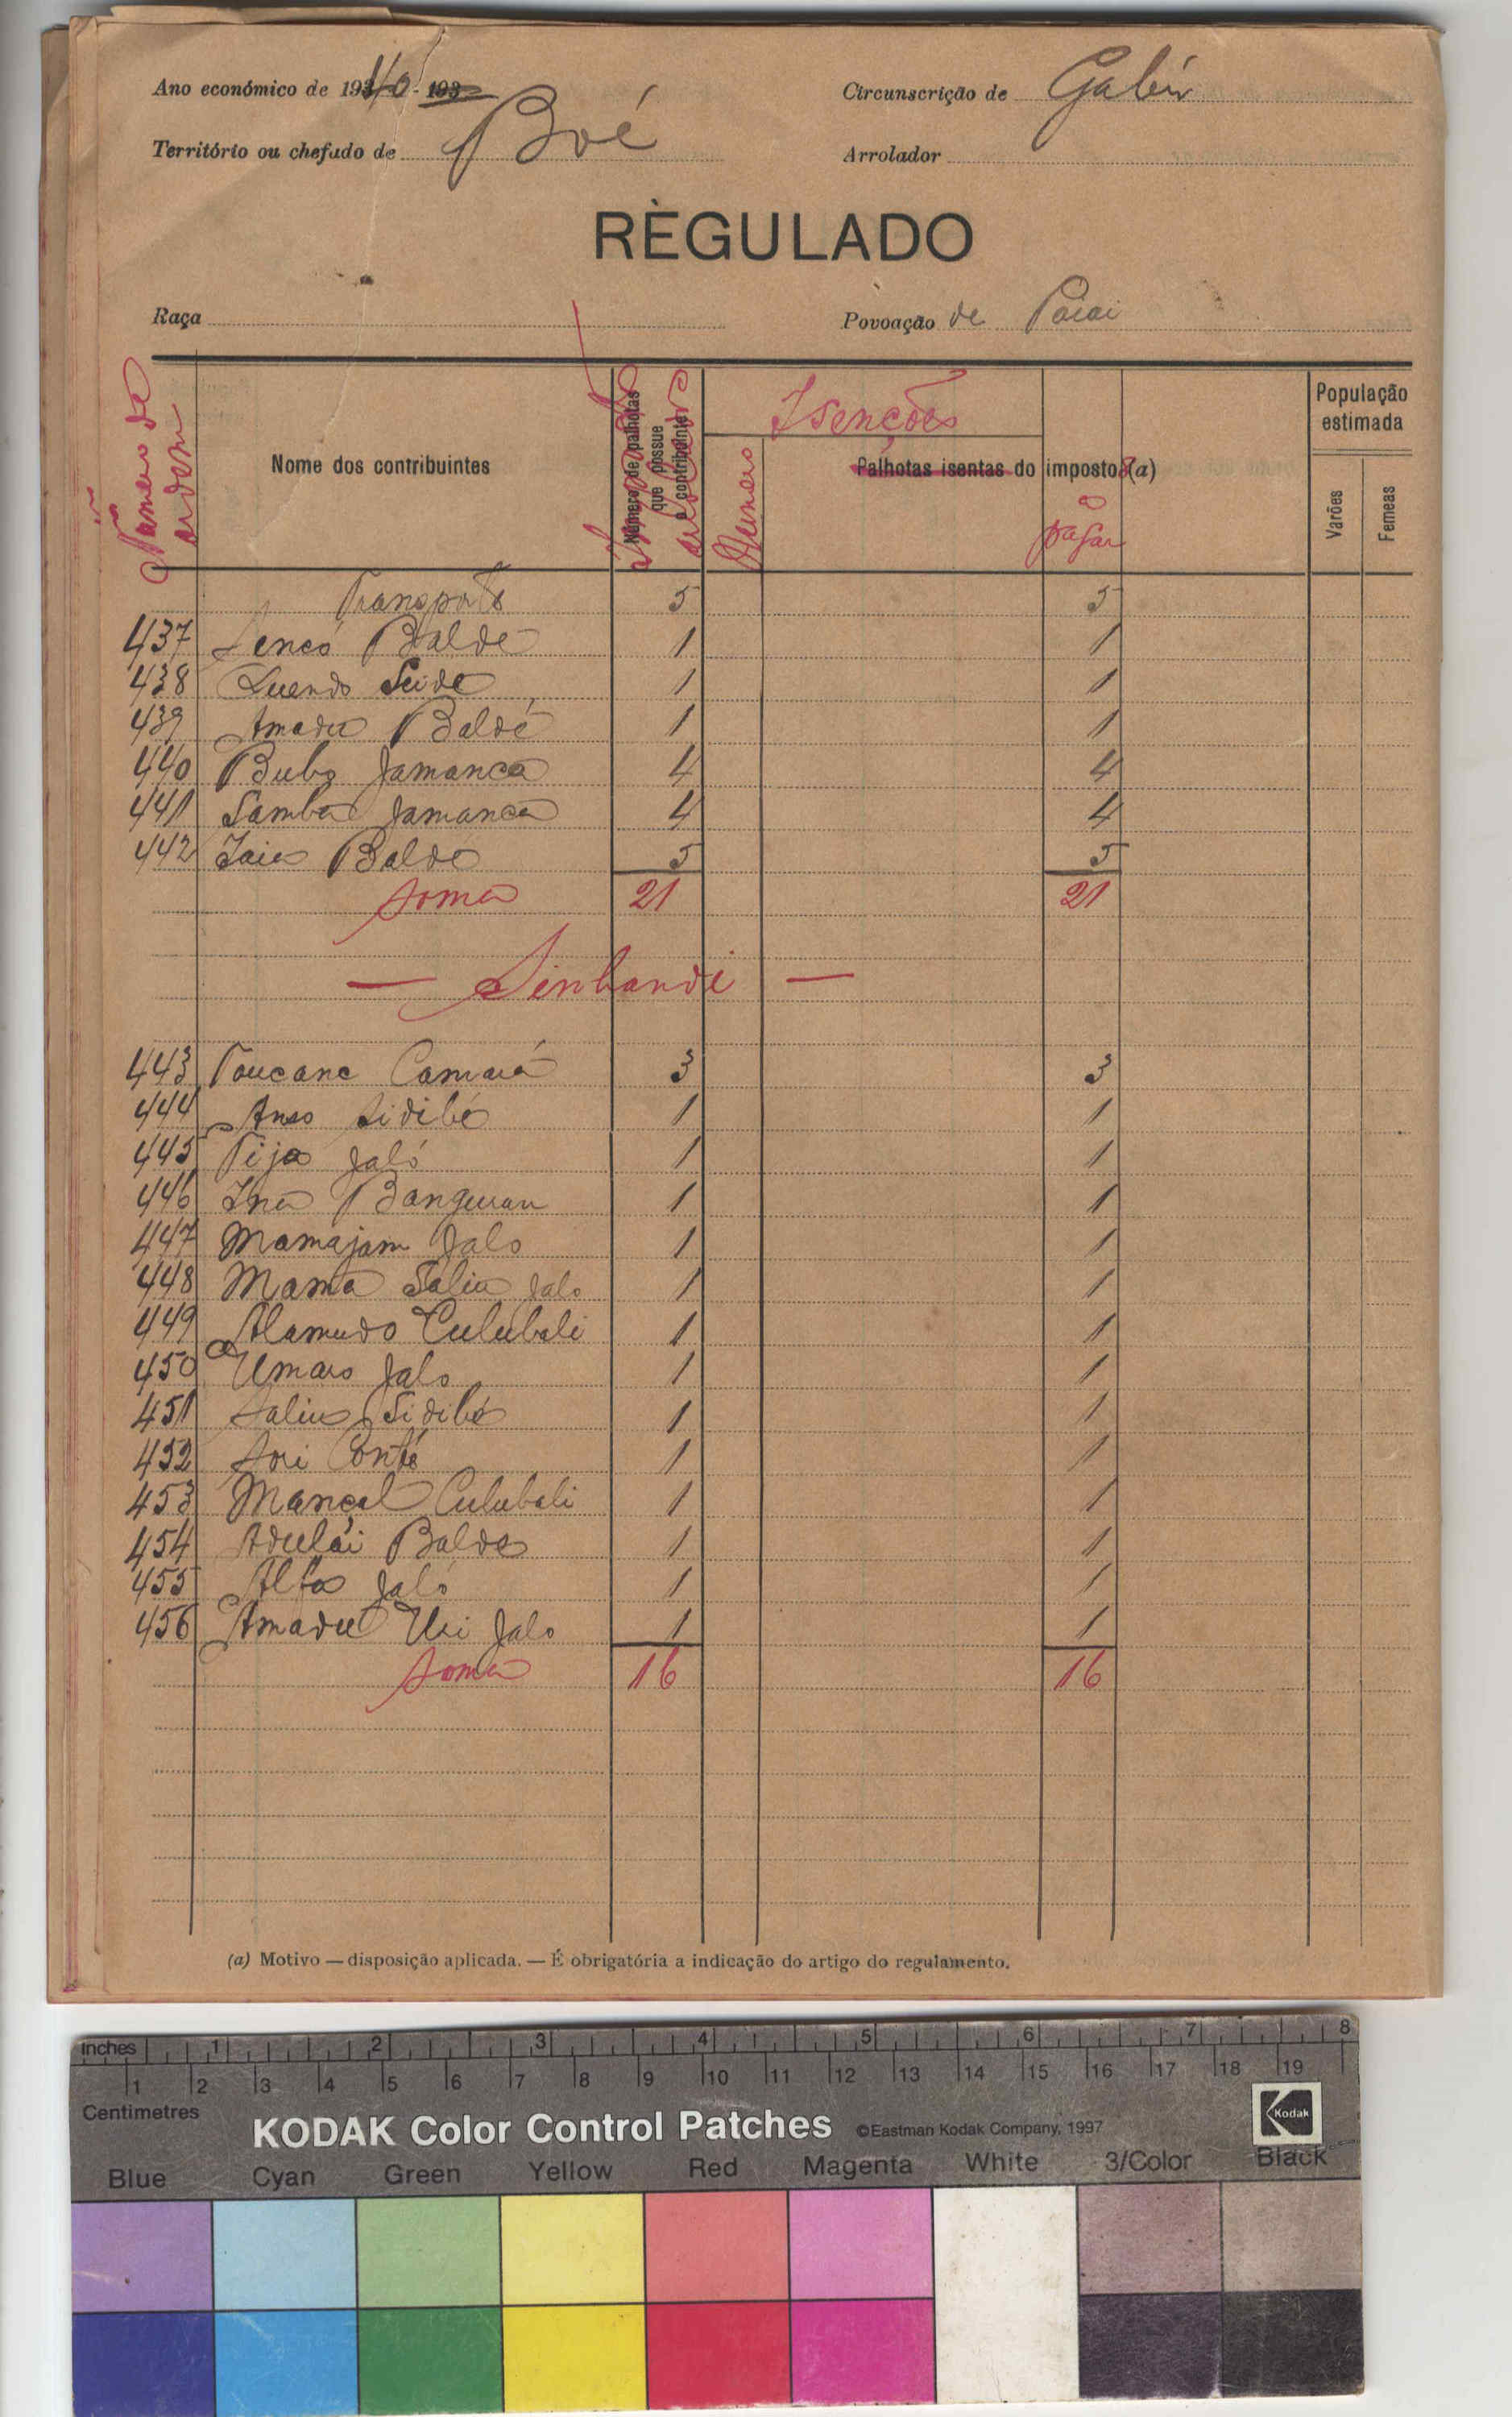 Ano económico de 1940 - 193
Circunscrição de Gabú
Território ou chefado de Boé
Arrolador
RÈGULADO
Raça
Povoação de Paiai
Número de ordem
Nome dos contribuintes
Número de palhotas que possue o contribuinte
Isenções
Número
Palhotas isentas do imposto (a)
A pagar
População estimada
Varões
Femeas
Transporte 5 5
437 Senco Balde 1 1
438 Quendo Seide 1 1
439 Amadu Baldé 1 1
440 Bubo Jamanca 4 4
441 Samba Jamanca 4 4
442 Iaia Balde 5 5
soma 21 21
— Sinhandi —
443 Toucane Camará 3 3
444 Anso Sidibé 1 1
445 Tija Jaló 1 1
446 Ina Banguran 1 1
447 Mamajam Jalo 1 1
448 Mama Saliu Jalo 1 1
449 Alamudo Culubali 1 1
450 Umaro Jalo 1 1
451 Saliu Sidibé 1 1
452 Sori Conté 1 1
453 Mançal Culubali 1 1
454 Adulái Balde 1 1
455 Alfa Jaló 1 1
456 Amadu Uri Jalo 1 1
soma 16 16
(a) Motivo — disposição aplicada. — É obrigatória a indicação do artigo do regulamento.
inches 1 2 3 4 5 6 7 8
1 2 3 4 5 6 7 8 9 10 11 12 13 14 15 16 17 18 19
Centimetres
KODAK Color Control Patches ©Eastman Kodak Company, 1997 Kodak
Blue Cyan Green Yellow Red Magenta White 3/Color Black